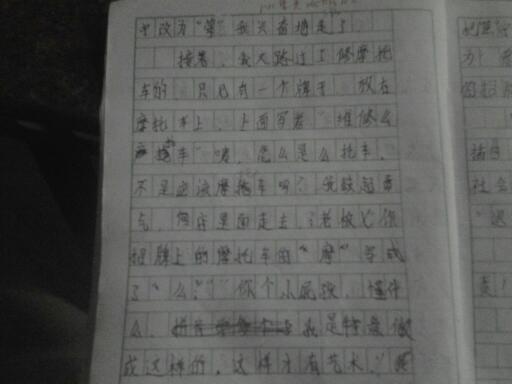 改为“第”我兴奋地走了。
接着，我又路过了修摩托
车的，只见有一个牌子，放在
摩托车上，上面写着“维修么
托车”咦，怎么是么托车，
不是应该摩托车吗？我鼓起勇
气，向店里面走去，老板
把牌上的摩托车的“摩”写成
了“么”“你个小屁孩，懂什
么，我是特意做
成这样的，这样才有艺术，”
社会